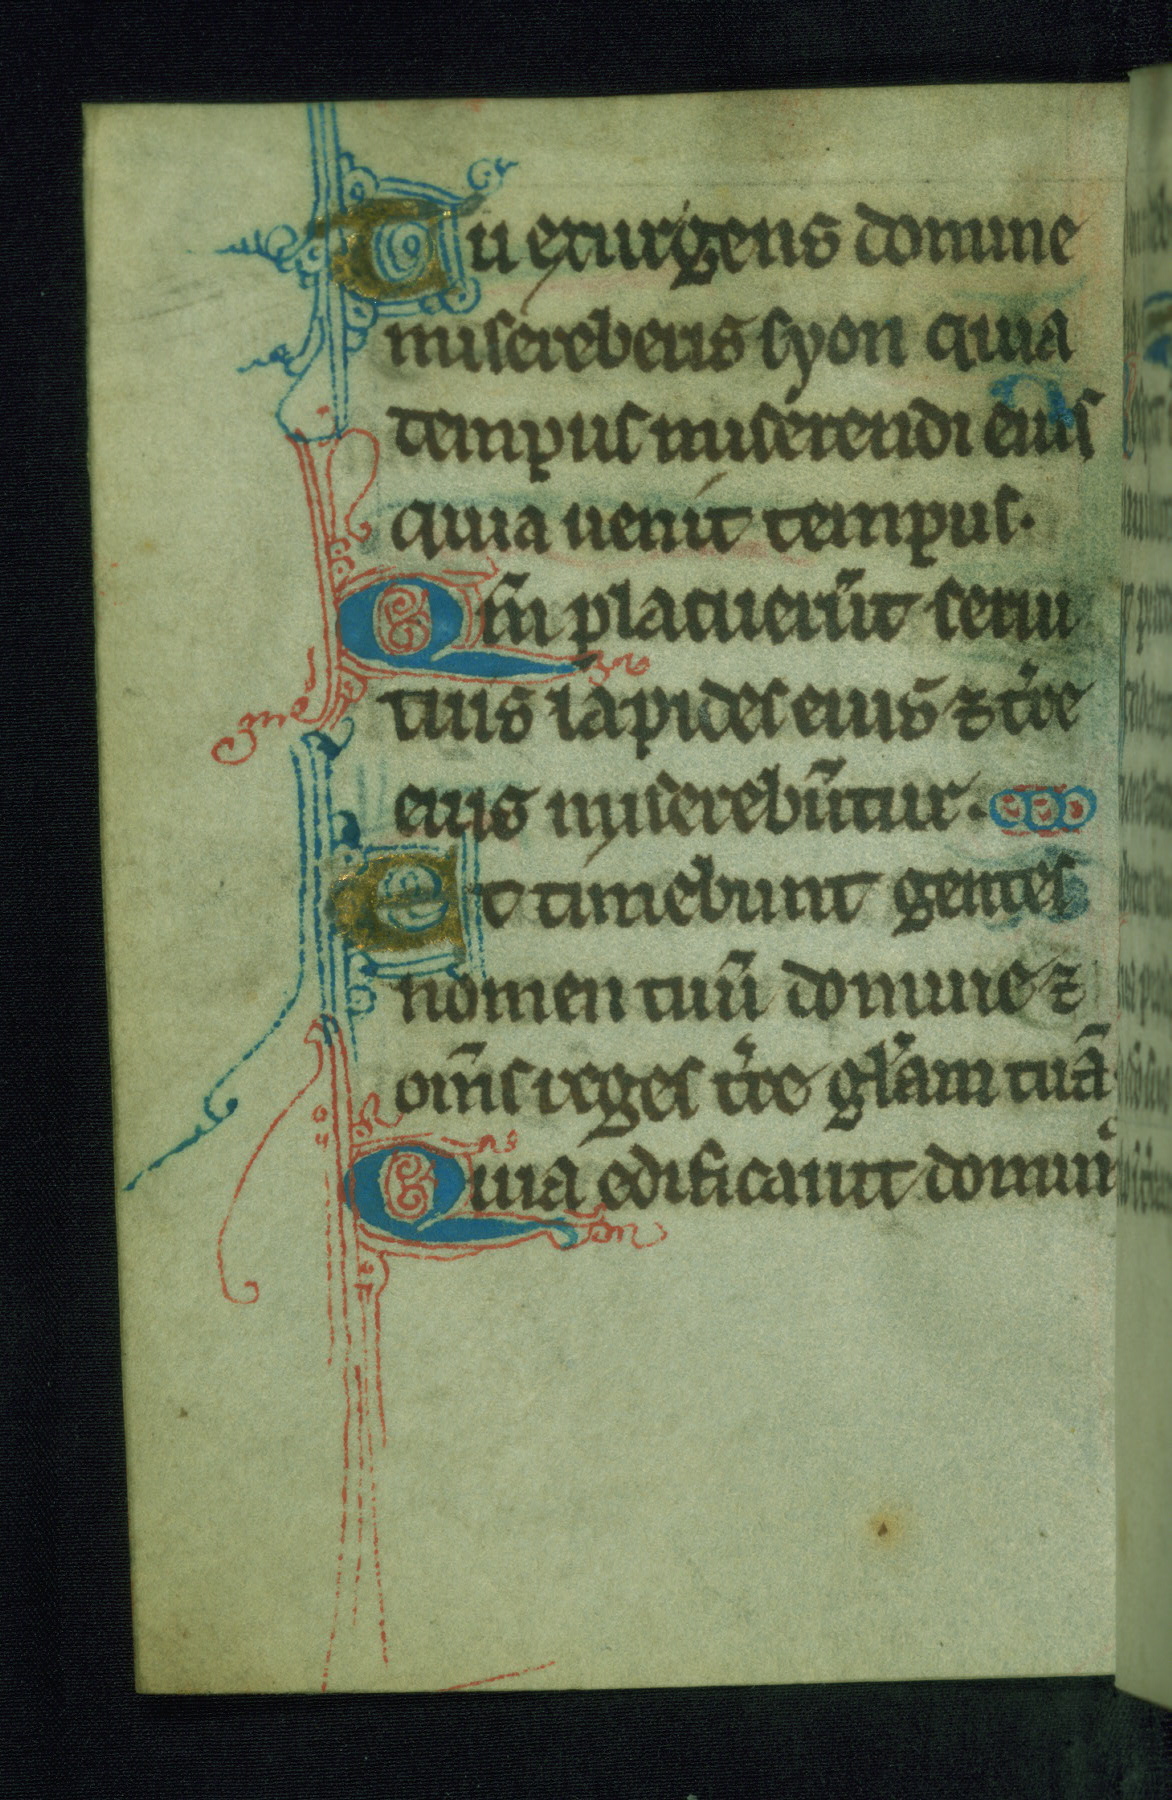 Tu exurgens domine
misereberis syon quia
tempus miserendi eius
quia uenit tempus.
Qm̄ placuerūt serui
tuis lapides eius ⁊ tr̄e
eius miserebūtur.
Et timebunt gentes
nomen tuū domine ⁊
om̄s reges tr̄e gl̄am tuā
Quia edificauit domin